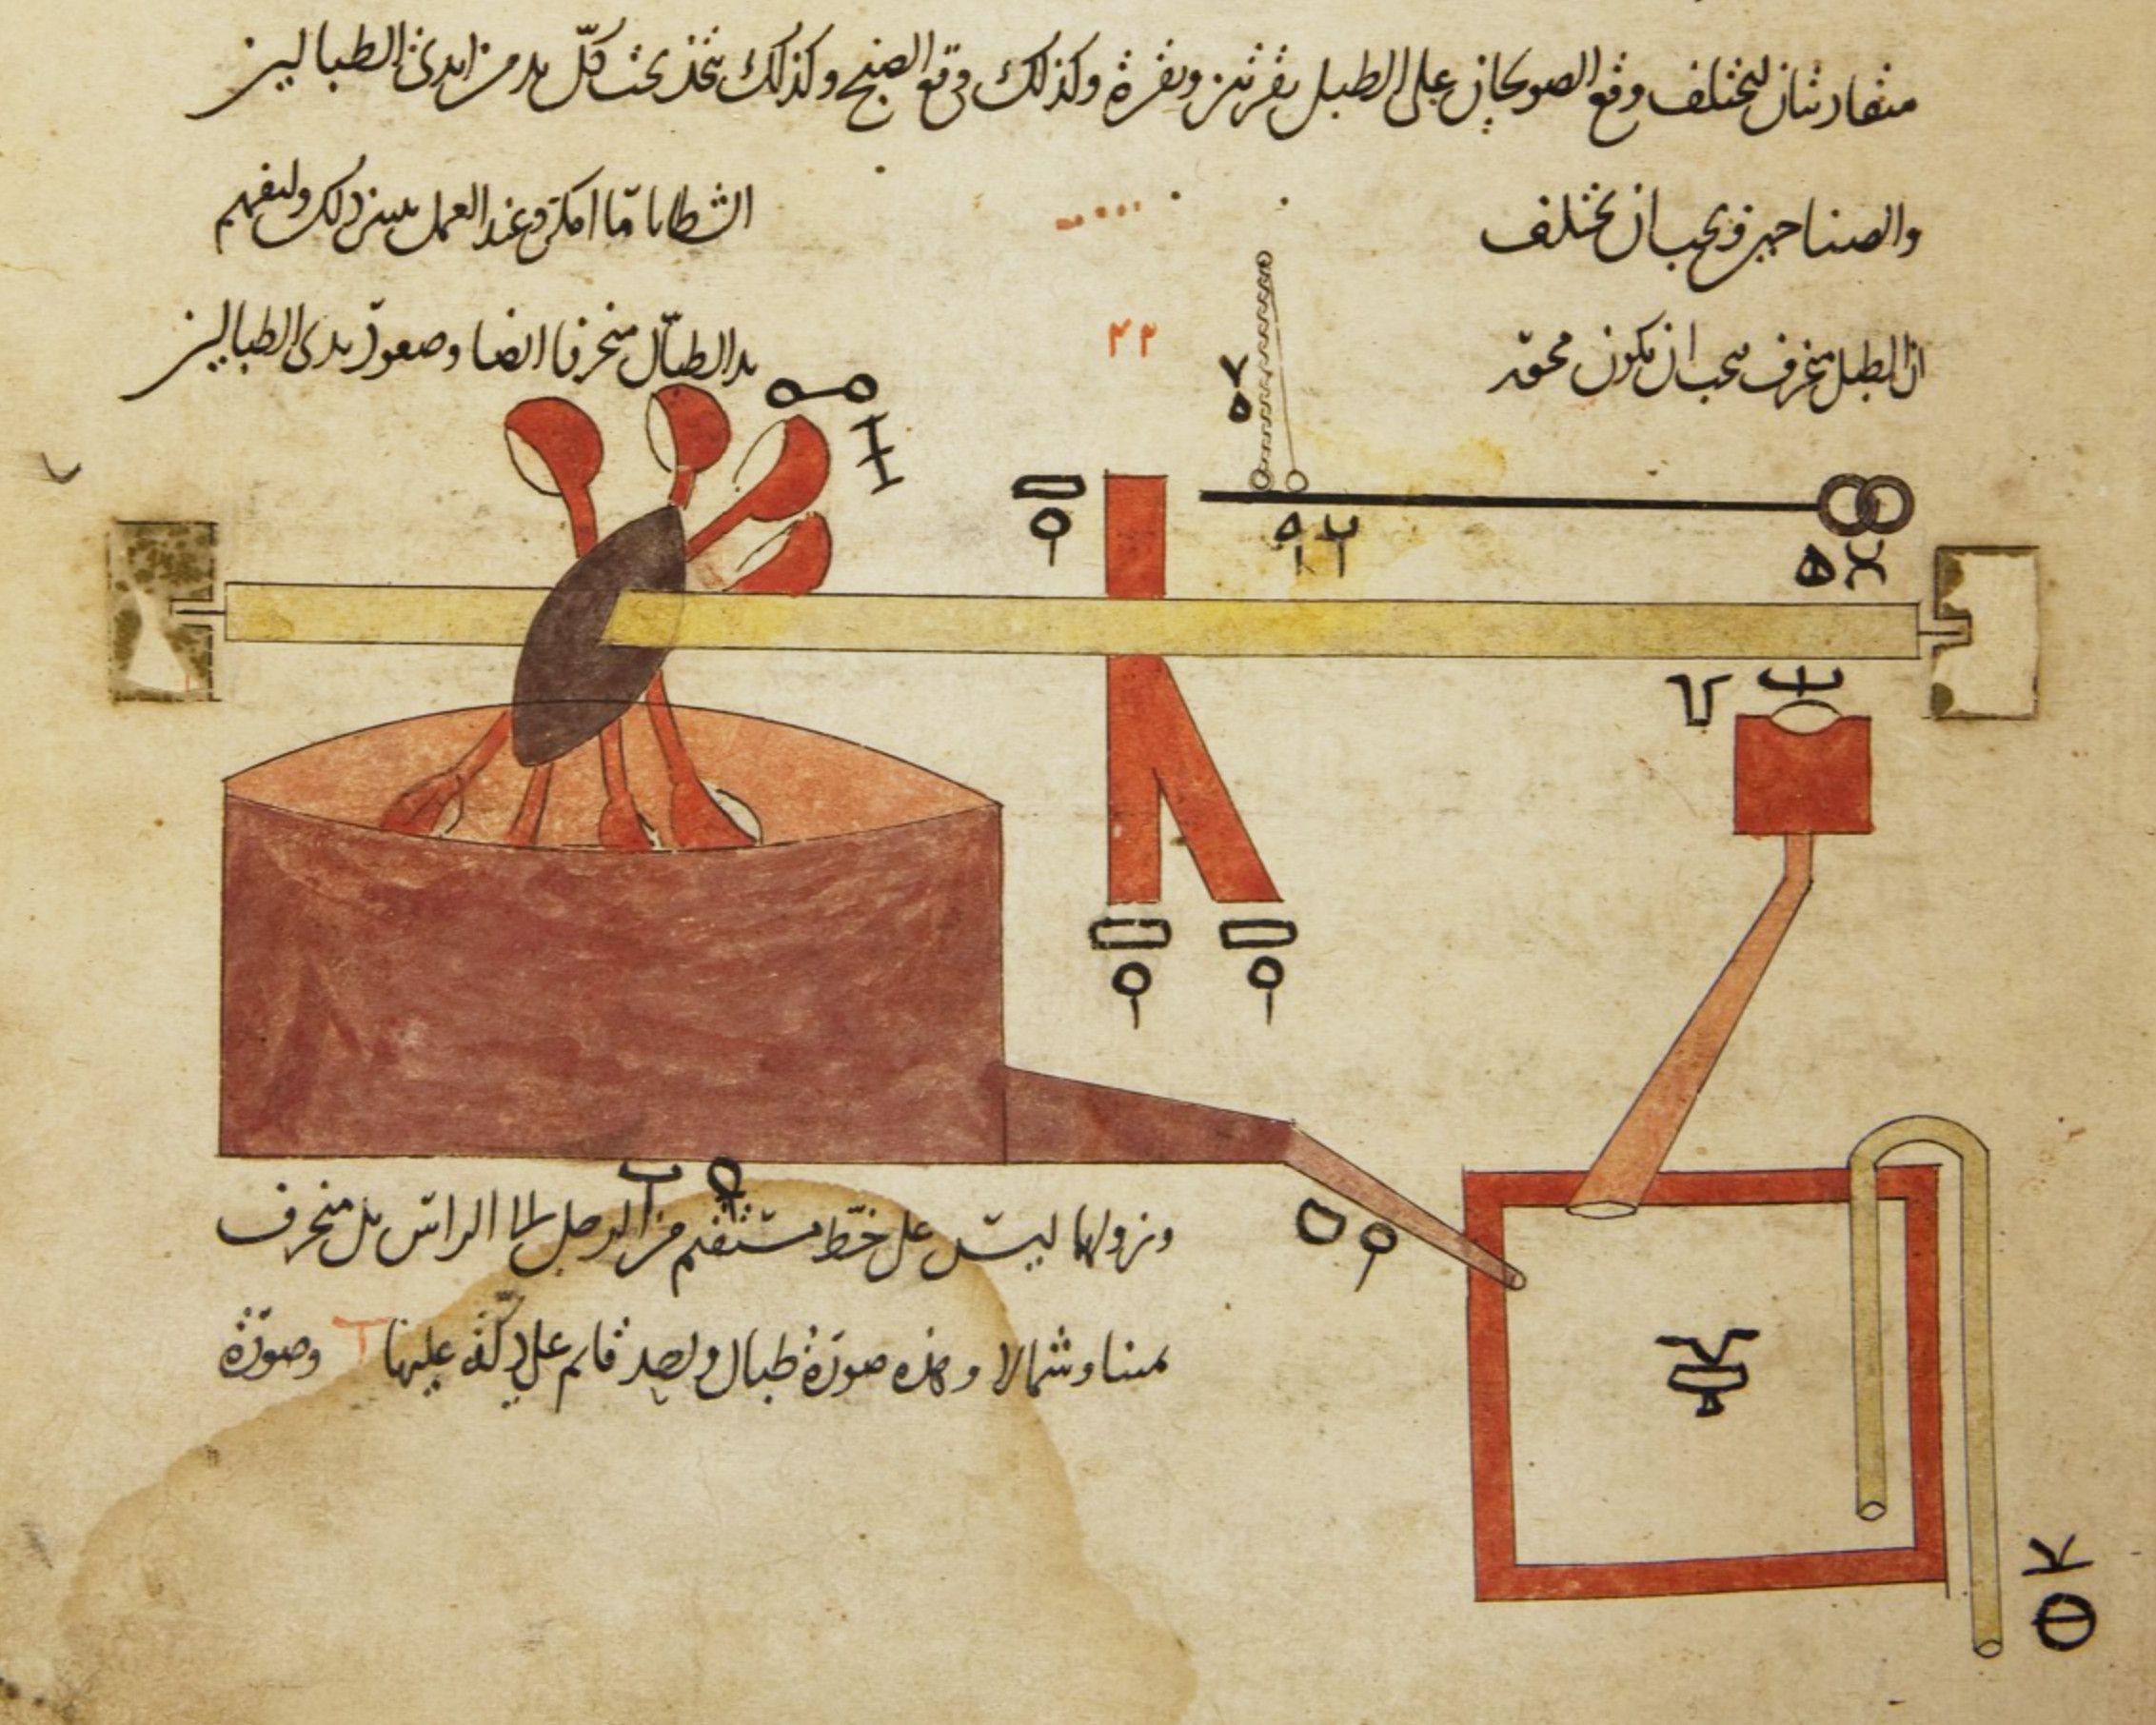 متقاربتان ليختلف وقع الصولجان على الطبل بنقرتين ونقرة وكذلك وقع الصنج وكذلك يتخذ تحت كل يد من ايدي الطبالين
والصناجين ويجب ان تختلف الشظايا ما امكن وعند العمل يبين ذلك وليفهم
ان الطبل منحرف يجب ان يكون يد الطبال منحرفا ايضا وصعود يدي الطبالين
٢٢
ونزولها ليس على خط مستقيم من الرجل الى الراس بل منحرف
يمينا وشمالا وهذه صورة طبال واحد قائم على دكة عليها وصورة